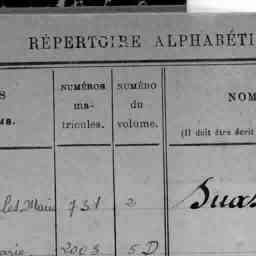 RÉPERTOIRE ALPHABÉTI
S NUMÉROS NUMÉRO NOM
ma- du
MS. tricules. volume. (Il doit être écrit
les Marie 731 2
arie 2003 5 D